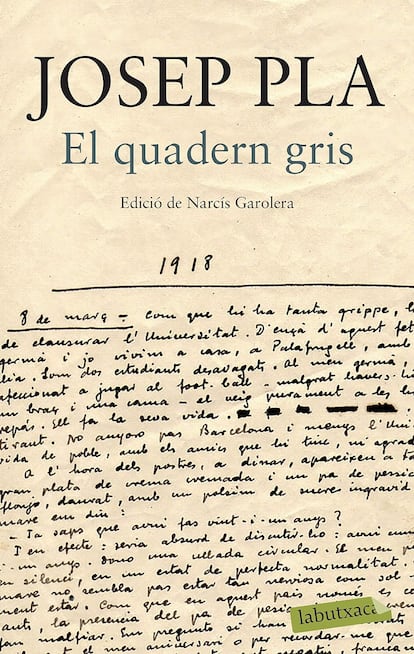 JOSEP PLA
El quadern gris
Edició de Narcís Garolera
1918
8 de març – Com que hi ha tanta grippe, h
de clausurar l'Universitat. D'ençà d'aquest fet
germà i jo vivim a casa, a Palafrugell, amb
lia. Som dos estudiants desvagats. Al meu germà,
afeccionat a jugar al foot-ball – malgrat haver-
un braç i una cama – el veig purament a les h
repàs. Ell fa la seva vida.
tirant. No anyoro pas Barcelona i menys l'Uni
vida de poble, amb els amics que hi tinc, m'agrad
A l'hora dels postres, a dinar, apareixen a ta
gran plata de crema cremada i un pa de pessic
flonjo, daurat, amb un polsim de sucre ingràvid
mare em diu:
– Ja saps que avui fas vint-i-un anys?
I en efecte: seria absurd de discutir-ho: avui
-un anys. Dono una ullada circular. El meu p
en silenci, en un estat de perfecta normalitat.
mare no sembla pas estar tan nerviosa com sol
ment estar. Com que en aquest país només es ce
ants, la presència del pa de pessi
fan malfiar. Em pregunto si han
el meu aniversari o per recordar-me que
labutxaca